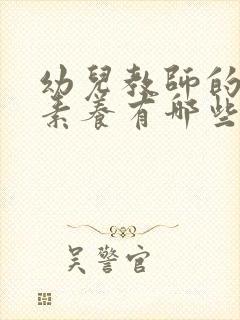 幼兒教師的
素養有哪些
吴警官